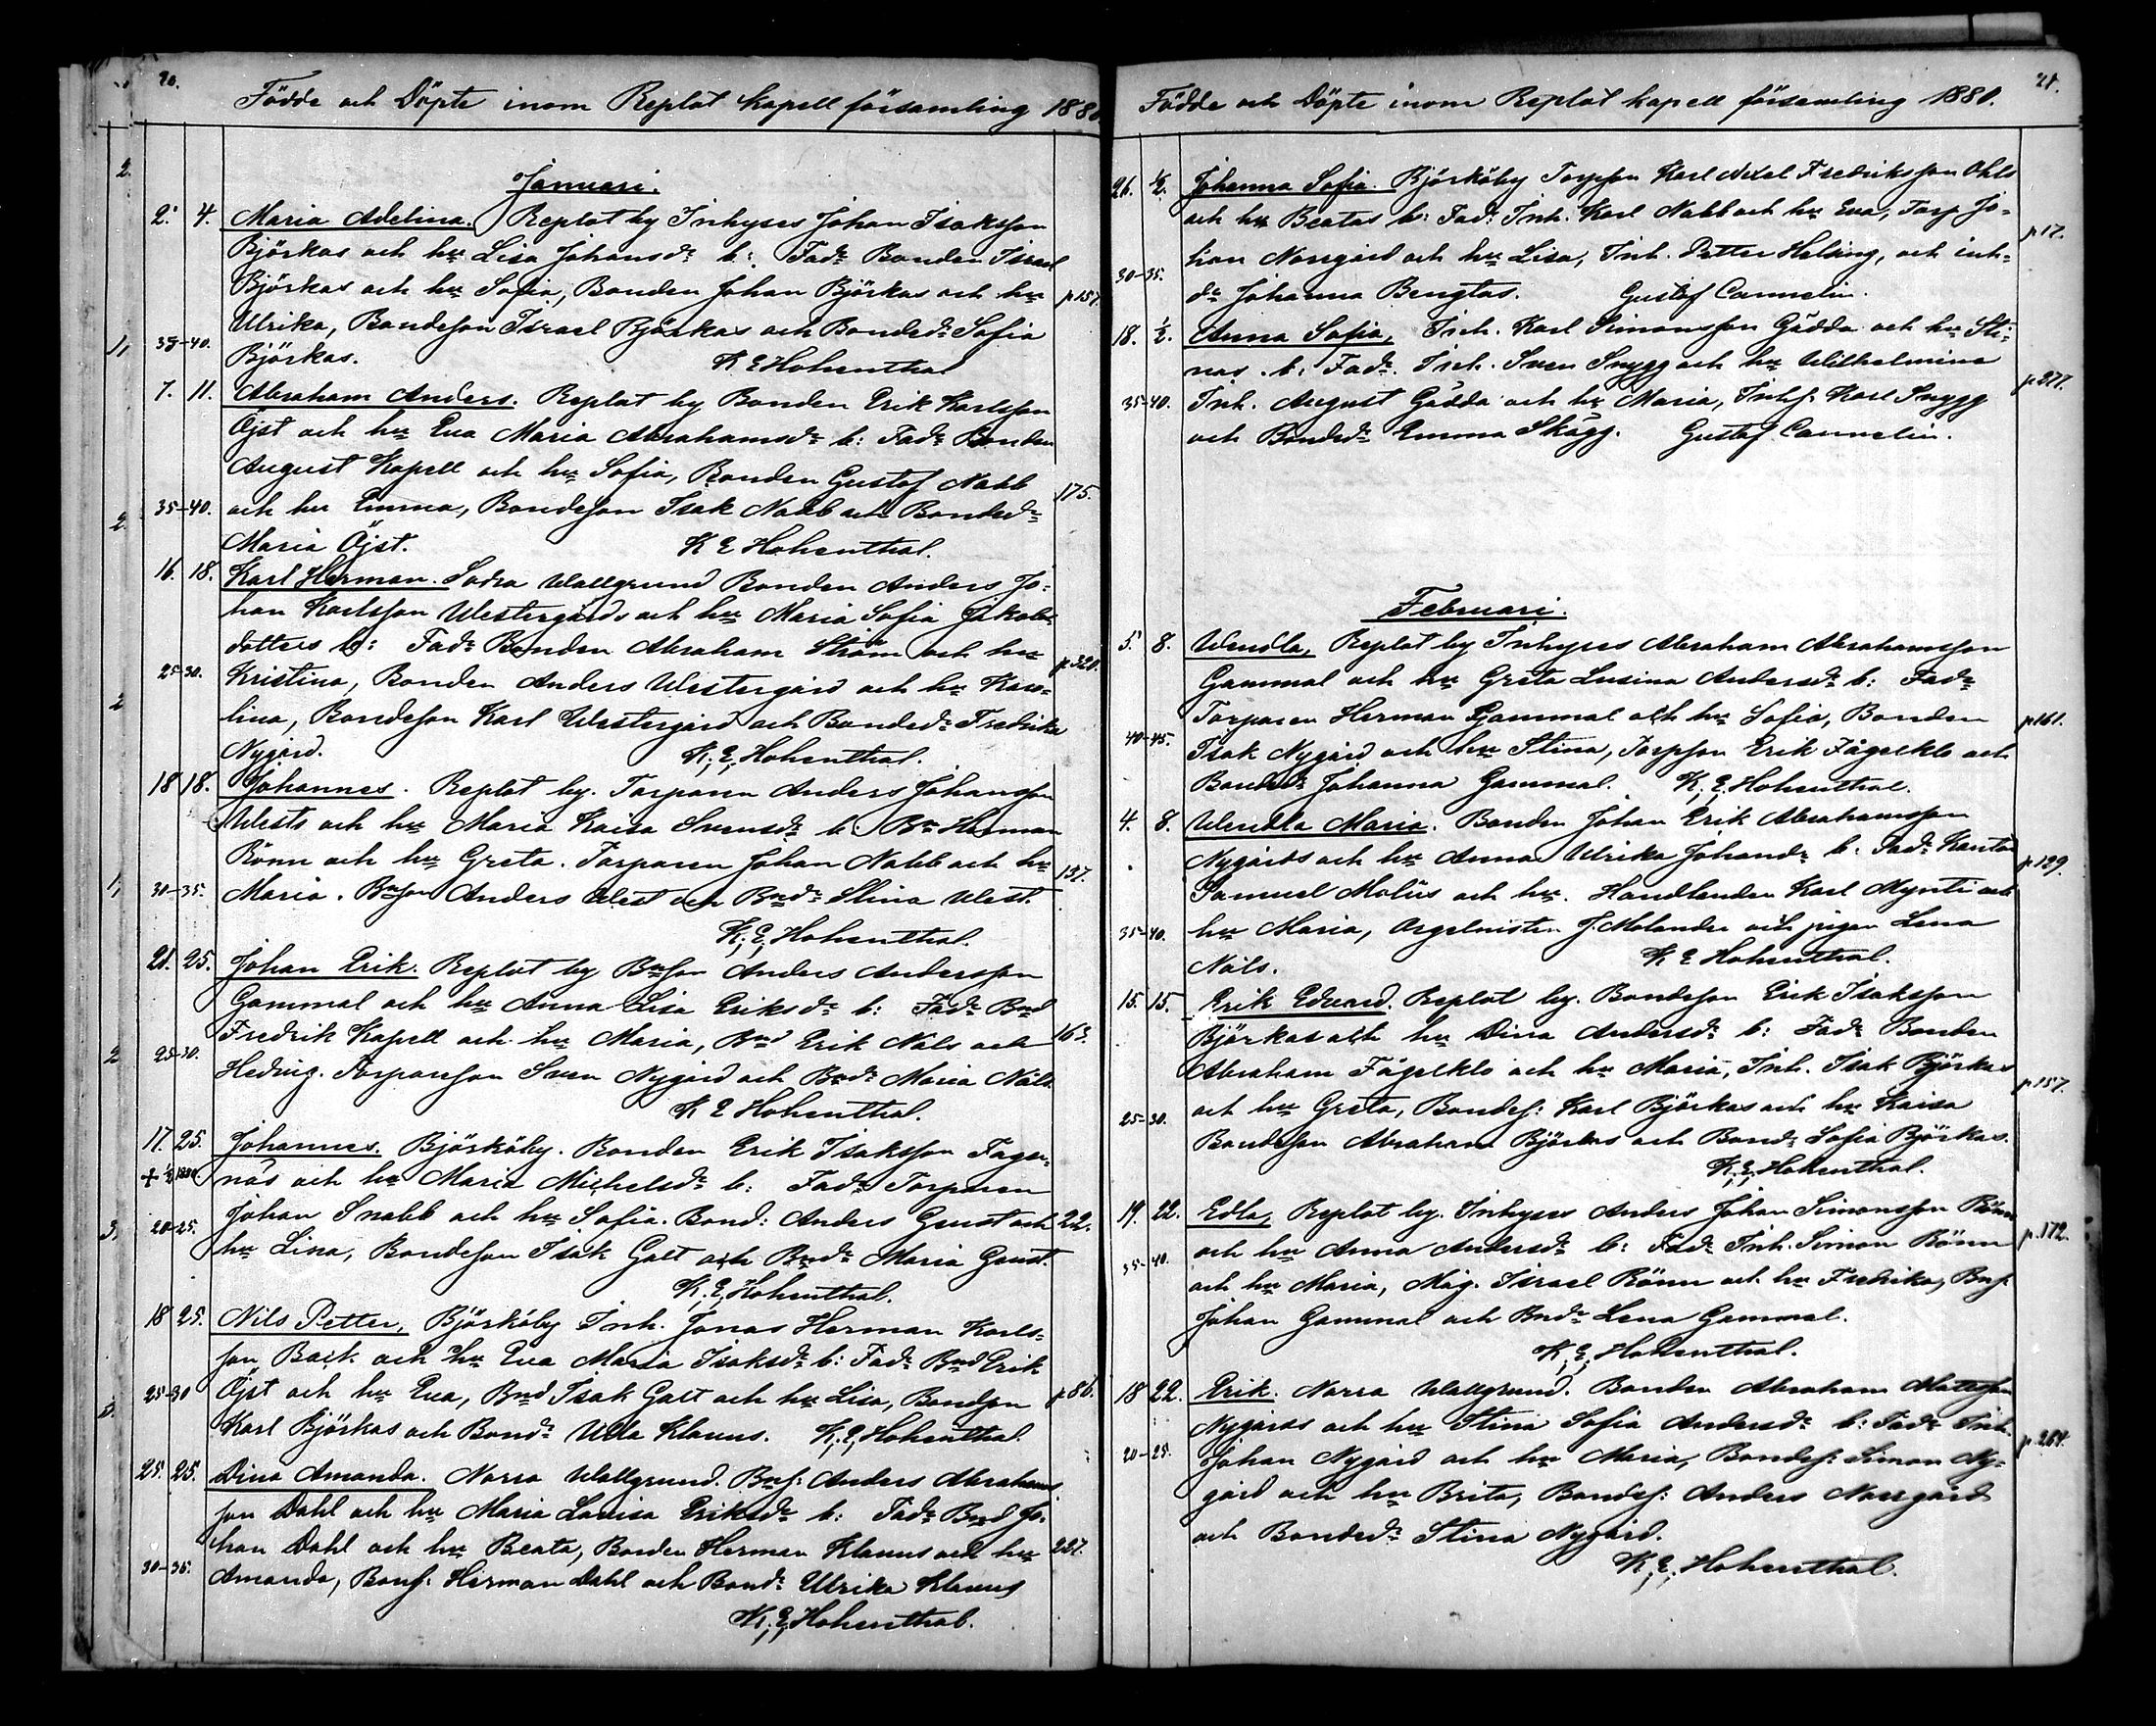 20.
Födde och Döpte inom Replot kapell församling 1880
Januari.
2. 4. Maria Adelina. Replot by Inhyses Johan Isaksson
Björkas och hu Lisa Johansdr b: Fadr Bonden Israel
Björkas och hu Sofia, Bonden Johan Björkas och hu p 157.
35-40. Ulrika, Bondeson Israel Björkas och Bondedr Sofia
Björkas. K E Hohenthal
7. 11. Abraham Anders. Replot by Bonden Erik Karlsson
Öjst och hu Eva Maria Abrahamsdr b: Fadr Bonden
August Kapell och hu Sofia, Bonden Gustaf Nabb 175.
35-40. och hu Emma, Bondeson Isak Nabb och Bondedr
Maria Öjst. K E Hohenthal.
16. 18. Karl Herman. Södra Wallgrund Bonden Anders Jo-
han Karlsson Westergårds och hu Maria Sofia Jakobs-
dotters b: Fadr Bonden Abraham Ström och hu p 320.
25-30. Kristina, Bonden Anders Westergård och hu Karo-
lina, Bondeson Karl Westergård och Bondedr Fredrika
Nygård. K; E; Hohenthal.
18 18. Johannes. Replot by. Torparen Anders Johansson
Wests och hu Maria Kaisa Svensdr b: Bn Herman
Rönn och hu Greta. Torparen Johan Nabb och hu 137.
30-35. Maria. Bnson Anders West och Bndr Stina West.
K; E; Hohenthal.
21. 25. Johan Erik. Replot by Bnson Anders Andersson
Gammal och hu Anna Lisa Eriksdr b: Fadr Bnd
Fredrik Kapell och hu Maria, Bnd Erik Näls och 163.
25-30. Hedvig. Torpareson Sven Nygård och Bndr Maria Näls
K E Hohenthal.
17. 25. Johannes. Björköby. Bonden Erik Isaksson Fager-
+ 1/2 1880. näs och hu Maria Michelsdr b: Fadr Torparen
20-25. Johan Snabb och hu Sofia. Bond: Anders Grust och 22.
hu Lisa, Bondeson Isak Galt och Bndr Maria Grust.
K; E; Hohenthal.
18 25. Nils Petter, Björköby Inh. Jonas Herman Karls-
son Back och hu Eva Maria Isaksdr b: Fadr Bnd Erik
25-30 Öjst och hu Eva, Bnd Isak Galt och hu Lisa, Bondson p 86.
Karl Björkas och Bondr Ulla Klauus. K; E; Hohenthal.
25. 25. Dina Amanda. Norra Wallgrund. Bnf: Anders Abrahams
son Dahl och hu Maria Lovisa Eriksdr b: Fadr Bnd Jo-
han Dahl och hu Beata, Bonden Herman Klauus och hu 227.
30-35. Amanda, Bonf: Herman Dahl och Bondr Ulrika Klauus
K; E; Hohenthal.
21.
Födde och Döpte inom Replot kapell församling 1880.
26. 1/2. Johanna Sofia. Björköby Torpson Karl Axel Fredriksson Ohls
och hu Beatas b: Fadr Inh. Karl Nabb och hu Eva, Torp Jo- p 17.
30-35. han Norrgård och hu Lisa, Inh. Petter Helsing, och inh-
dr Johanna Bengtas. Gustaf Cannelin.
18. 1/2. Anna Sofia, Inh. Karl Simonsson Gädda och hu Sti-
nas. b: Fadr. Inh. Sven Snygg och hu Wilhelmina p 277.
35-40. Inh. August Gädda och hu Maria, Inhs. Karl Snygg
och Bondedr Emma Skägg. Gustaf Cannelin.
Februari.
5. 8. Wendla, Replot by Inhyses Abraham Abrahamsson
Gammal och hu Greta Lusina Andersdr b: Fadr
Torparen Herman Gammal och hu Sofia, Bonden p 161.
40-45. Isak Nygård och hu Stina, Torpson Erik Fågelklo och
Bondedr Johanna Gammal. K; E; Hohenthal.
4. 8. Wendla Maria. Bonden Johan Erik Abrahamsson
Nygårds och hu Anna Ulrika Johansdr b: Fadr Kantor p 129.
Samuel Molüs och hu. Handlanden Karl Mynti och
35-40. hu Maria, Orgelnisten J. Molander och pigan Lena
Näls. K E Hohenthal.
15. 15. Erik Edvard. Replot by. Bondeson Erik Isaksson
Björkas och hu Dina Andersdr b: Fadr Bonden
Abraham Fågelklo och hu Maria, Inh. Isak Björkas p 157.
25-30. och hu Greta, Bondes: Karl Björkas och hu Kaisa
Bondeson Abraham Björkas och Bondr Sofia Björkas.
K; E; Hohenthal.
19. 22. Edla, Replot by. Inhyses Anders Johan Simonsson Rönn
och hu Anna Andersdr b: Fadr Inh. Simon Rönn p. 172.
35-40. och hu Maria, Måg. Israel Rönn och hu Fredrika, Bnf.
Johan Gammal och Bndr Lena Gammal.
K; E; Hohenthal.
18 22. Erik. Norra Wallgrund. Bonden Abraham Matsson
Nygårds och hu Stina Sofia Andersdr b: Fadr Inh.
20-25. Johan Nygård och hu Maria, Bondes: Simon Ny- p. 264.
gård och hu Brita, Bondes: Anders Norrgård
och Bondedr Stina Nygård.
K; E; Hohenthal.